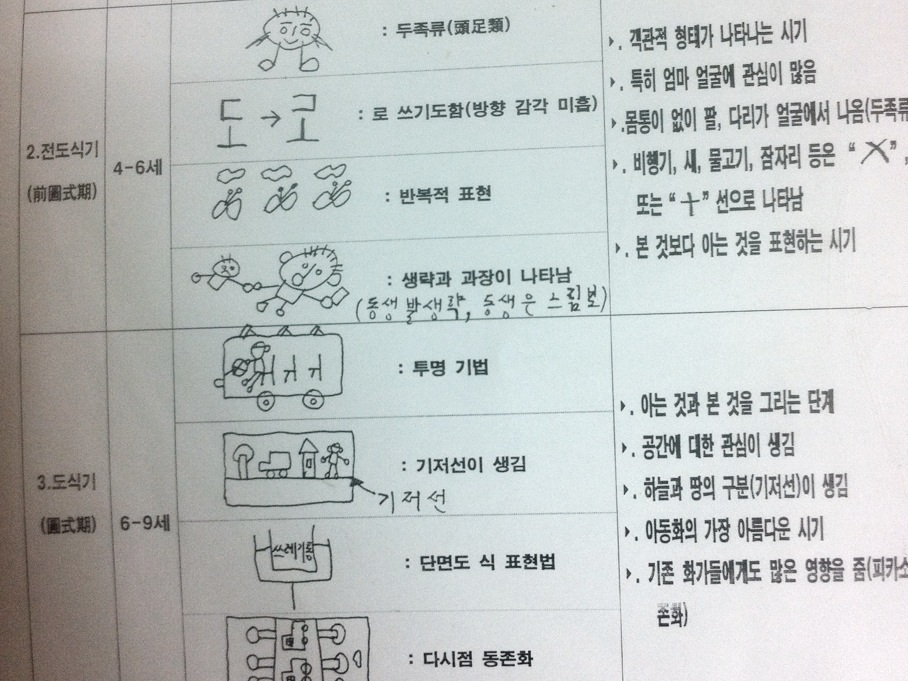 2.전도식기
(前圖式期)
4-6세
: 두족류(頭足類)
도 → 고
: 로 쓰기도함(방향 감각 미흡)
: 반복적 표현
: 생략과 과장이 나타남
(동생 발생략, 동생은 스림보)
. 객관적 형태가 나타나는 시기
. 특히 엄마 얼굴에 관심이 많음
.몸통이 없이 팔, 다리가 얼굴에서 나옴(두족류
. 비행기, 새, 물고기, 잠자리 등은 “ X ”,
또는 “ 十 ” 선으로 나타남
. 본 것보다 아는 것을 표현하는 시기
3.도식기
(圖式期)
6-9세
: 투명 기법
: 기저선이 생김
기저선
쓰레기통
: 단면도 식 표현법
: 다시점 동존화
. 아는 것과 본 것을 그리는 단계
. 공간에 대한 관심이 생김
. 하늘과 땅의 구분(기저선)이 생김
. 아동화의 가장 아름다운 시기
. 기존 화가들에게도 많은 영향을 줌(피카소
존화)